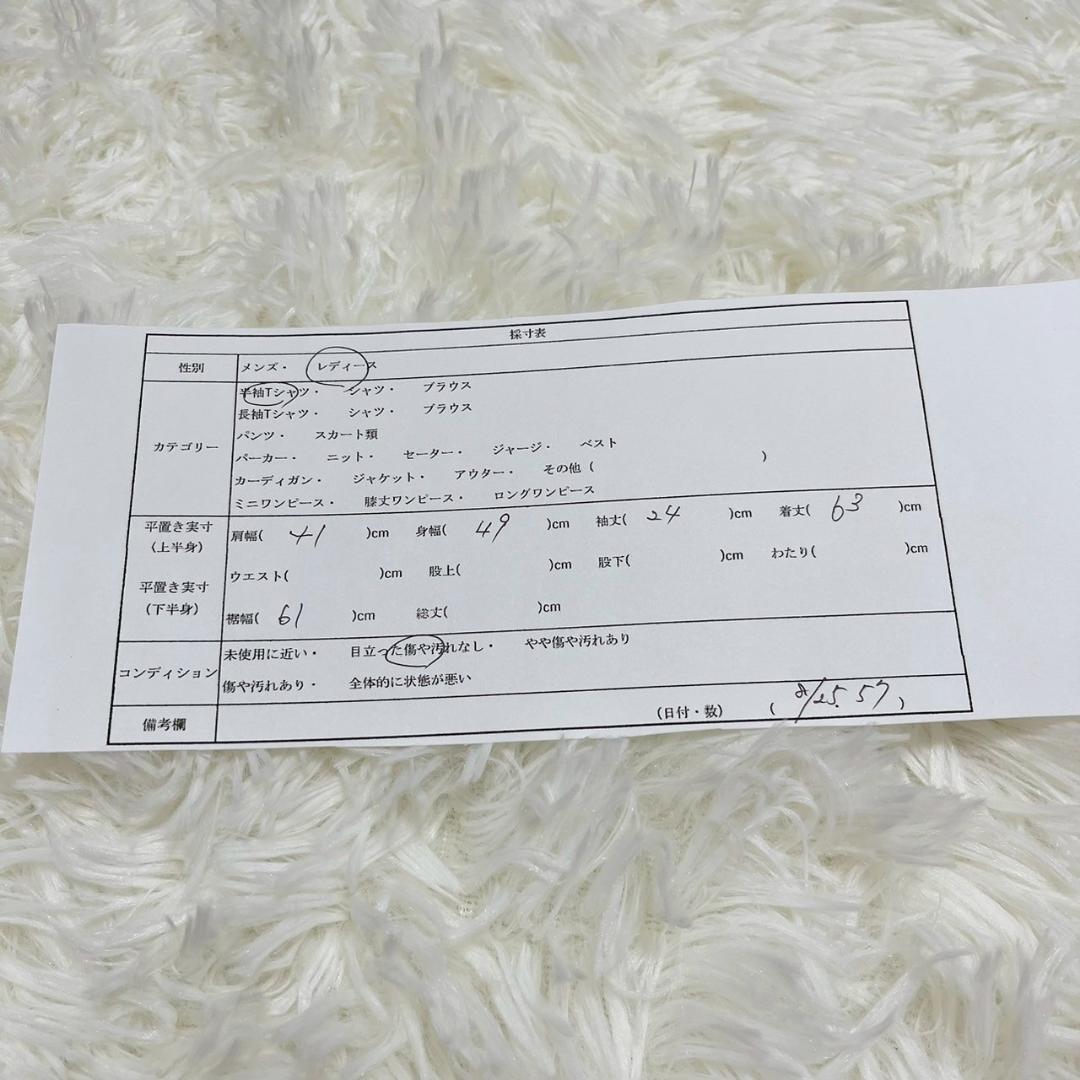 採寸表
性別 メンズ・ レディース
カテゴリー
半袖Tシャツ・ シャツ・ ブラウス
長袖Tシャツ・ シャツ・ ブラウス
パンツ・ スカート類
パーカー・ ニット・ セーター・ ジャージ・ ベスト
カーディガン・ ジャケット・ アウター・ その他 ( )
ミニワンピース・ 膝丈ワンピース・ ロングワンピース
平置き実寸
(上半身)
肩幅( 41 )cm 身幅( 49 )cm 袖丈( 24 )cm 着丈( 63 )cm
平置き実寸
(下半身)
ウエスト( )cm 股上( )cm 股下( )cm わたり( )cm
裾幅( 61 )cm 総丈( )cm
コンディション
未使用に近い・ 目立った傷や汚れなし・ やや傷や汚れあり
傷や汚れあり・ 全体的に状態が悪い
備考欄 (日付・数) ( 8/25. 57 )